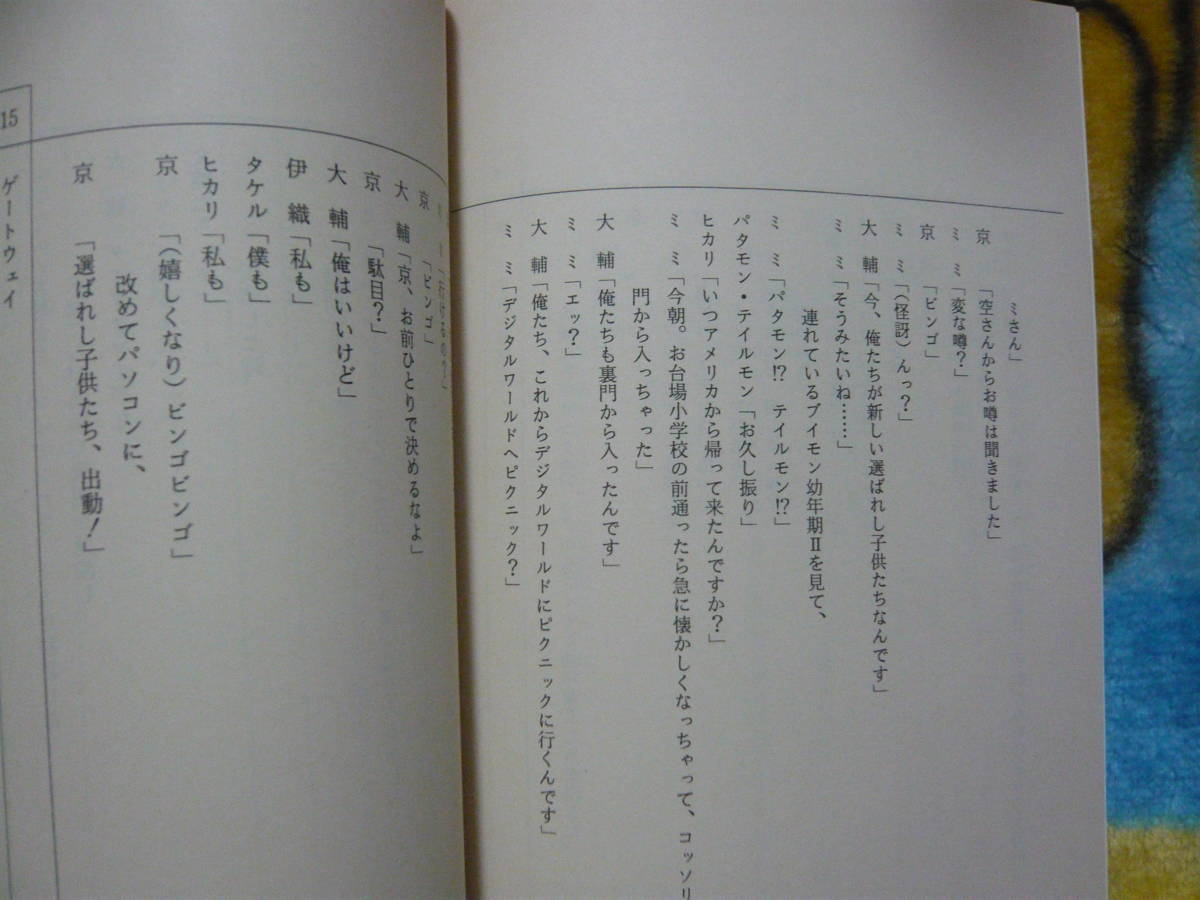 ミさん」
京　「空さんからお噂は聞きました」
ミ　ミ「変な噂？」
京　「ビンゴ」
ミ　ミ「(怪訝)んっ？」
大　輔「今、俺たちが新しい選ばれし子供たちなんです」
ミ　ミ「そうみたいね……」
連れているブイモン幼年期Ⅱを見て、
ミ　ミ「パタモン!?　テイルモン!?」
パタモン・テイルモン「お久し振り」
ヒカリ「いつアメリカから帰って来たんですか？」
ミ　ミ「今朝。お台場小学校の前通ったら急に懐かしくなっちゃって、コッソリ
門から入っちゃった」
大　輔「俺たちも裏門から入ったんです」
ミ　ミ「エッ？」
大　輔「俺たち、これからデジタルワールドにピクニックに行くんです」
ミ　ミ「デジタルワールドへピクニック？」
京　「ビンゴ」
大　輔「京、お前ひとりで決めるなよ」
京　「駄目？」
大　輔「俺はいいけど」
伊　織「私も」
タケル「僕も」
ヒカリ「私も」
京　「(嬉しくなり)ビンゴビンゴ」
改めてパソコンに、
京　「選ばれし子供たち、出動！」
15
ゲートウェイ